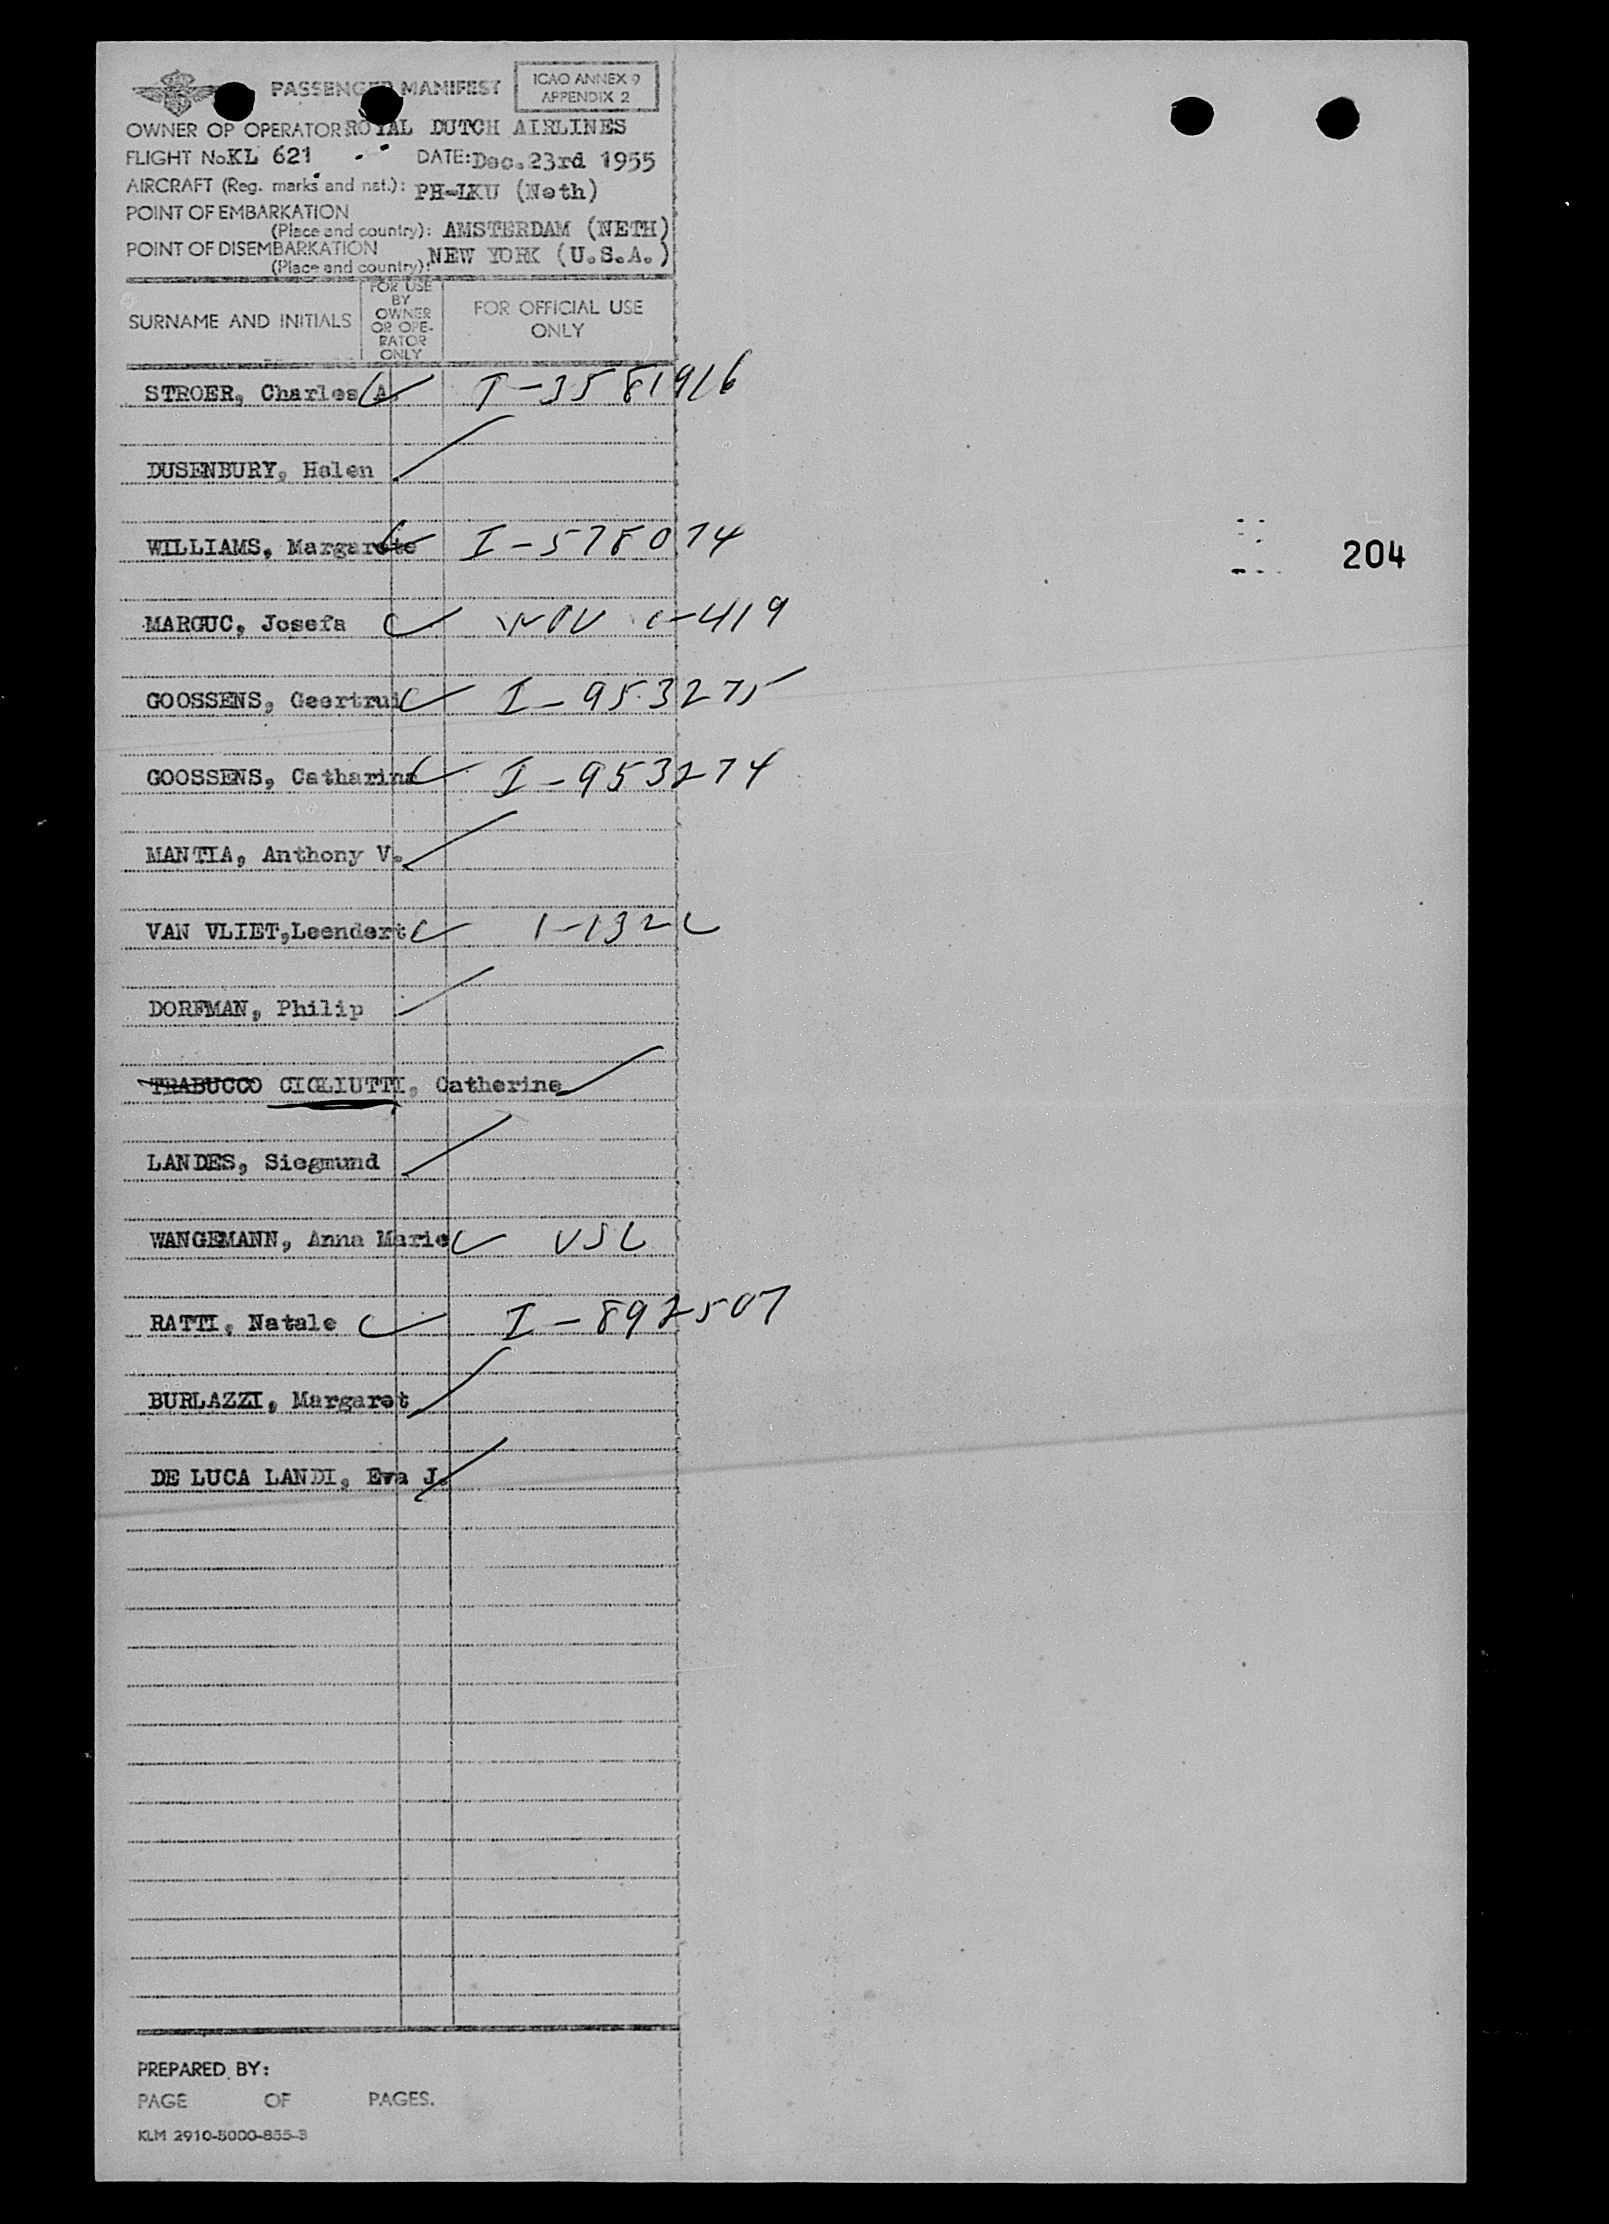 PASSENGER MANIFEST
ICAO ANNEX 9
APPENDIX 2
OWNER OP OPERATOR ROYAL DUTCH AIRLINES
FLIGHT No KL 621 DATE: Dec. 23rd 1955
AIRCRAFT (Reg. marks and nat.): PH-LKU (Neth)
POINT OF EMBARKATION
(Place and country): AMSTERDAM (NETH)
POINT OF DISEMBARKATION
(Place and country): NEW YORK (U.S.A.)
SURNAME AND INITIALS
FOR USE
BY
OWNER
OR OPE-
RATOR
ONLY
FOR OFFICIAL USE
ONLY
STROER, Charles A. I-3581916
DUSENBURY, Helen
WILLIAMS, Margarete I-578074
204
MARGUC, Josefa -419
GOOSSENS, Geertrui I-953275
GOOSSENS, Catharina I-953274
MANTIA, Anthony V.
VAN VLIET, Leendert 1-132
DORFMAN, Philip
TRABUCCO CIGLIUTTI, Catherine
LANDES, Siegmund
WANGEMANN, Anna Marie USC
RATTI, Natale I-892507
BURLAZZI, Margaret
DE LUCA LANDI, Eva J.
PREPARED BY:
PAGE OF PAGES.
KLM 2910-5000-855-3